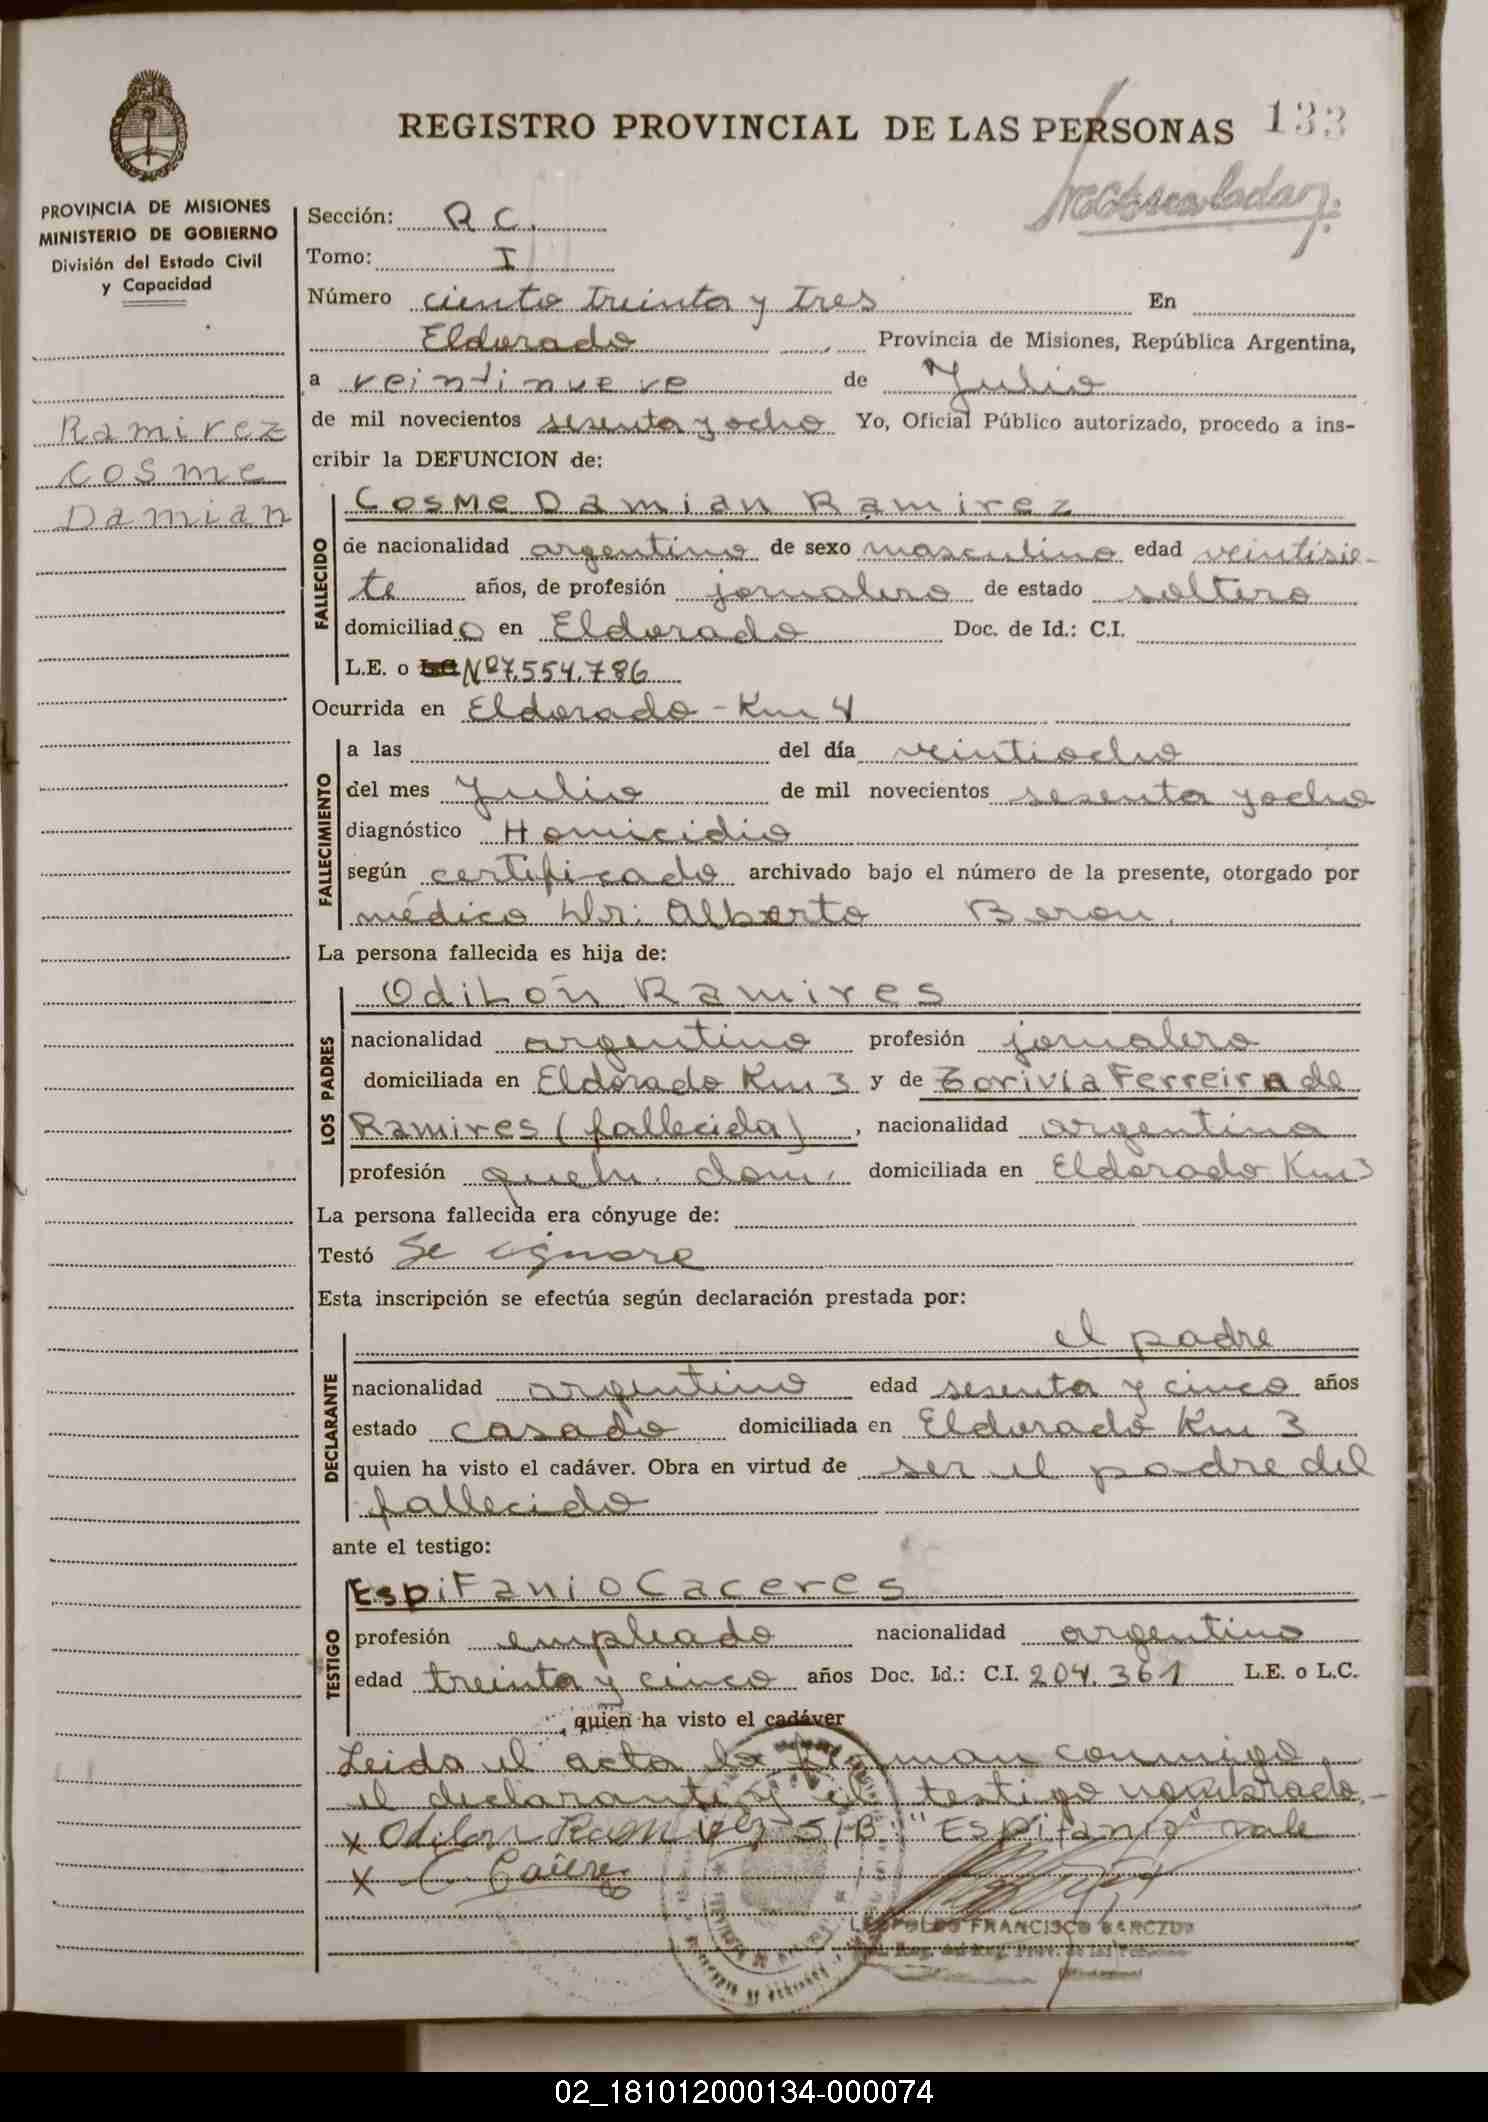 REGISTRO PROVINCIAL DE LAS PERSONAS 133
PROVINCIA DE MISIONES
MINISTERIO DE GOBIERNO
División del Estado Civil
y Capacidad
Ramirez
Cosme
Damian
Sección: R C.
Tomo: I
Número ciento treinta y tres En
Eldorado Provincia de Misiones, República Argentina,
a veintinueve de Julio
de mil novecientos sesenta y ocho Yo, Oficial Público autorizado, procedo a ins-
cribir la DEFUNCION de:
FALLECIDO
Cosme Damian Ramirez
de nacionalidad argentino de sexo masculino edad veintisie-
te años, de profesión jornalero de estado soltero
domiciliado en Eldorado Doc. de Id.: C.I.
L.E. o Nº 7.554.786
Ocurrida en Eldorado - Km 4
FALLECIMIENTO
a las del día veintiocho
del mes Julio de mil novecientos sesenta y ocho
diagnóstico Homicidio
según certificado archivado bajo el número de la presente, otorgado por
médico Dr: Alberto Beron.
La persona fallecida es hija de:
LOS PADRES
Odilon Ramires
nacionalidad argentino profesión jornalero
domiciliada en Eldorado Km 3 y de Torivia Ferreira de
Ramires (fallecida), nacionalidad argentina
profesión queh. dom. domiciliada en Eldorado Km 3
La persona fallecida era cónyuge de:
Testó Se ignora
Esta inscripción se efectúa según declaración prestada por:
DECLARANTE
el padre
nacionalidad argentino edad sesenta y cinco años
estado casado domiciliada en Eldorado Km 3
quien ha visto el cadáver. Obra en virtud de ser el padre del
fallecido
ante el testigo:
TESTIGO
Espifanio Caceres
profesión empleado nacionalidad argentino
edad treinta y cinco años Doc. Id.: C.I. 204.361 L.E. o L.C.
, quien ha visto el cadáver
Leida el acta la firman conmigo
el declarante y el testigo nombrado.-
x Odilon Ramirez S/B: "Espifanio" vale
x C. Caceres
LEOPOLDO FRANCISCO
02_181012000134-000074